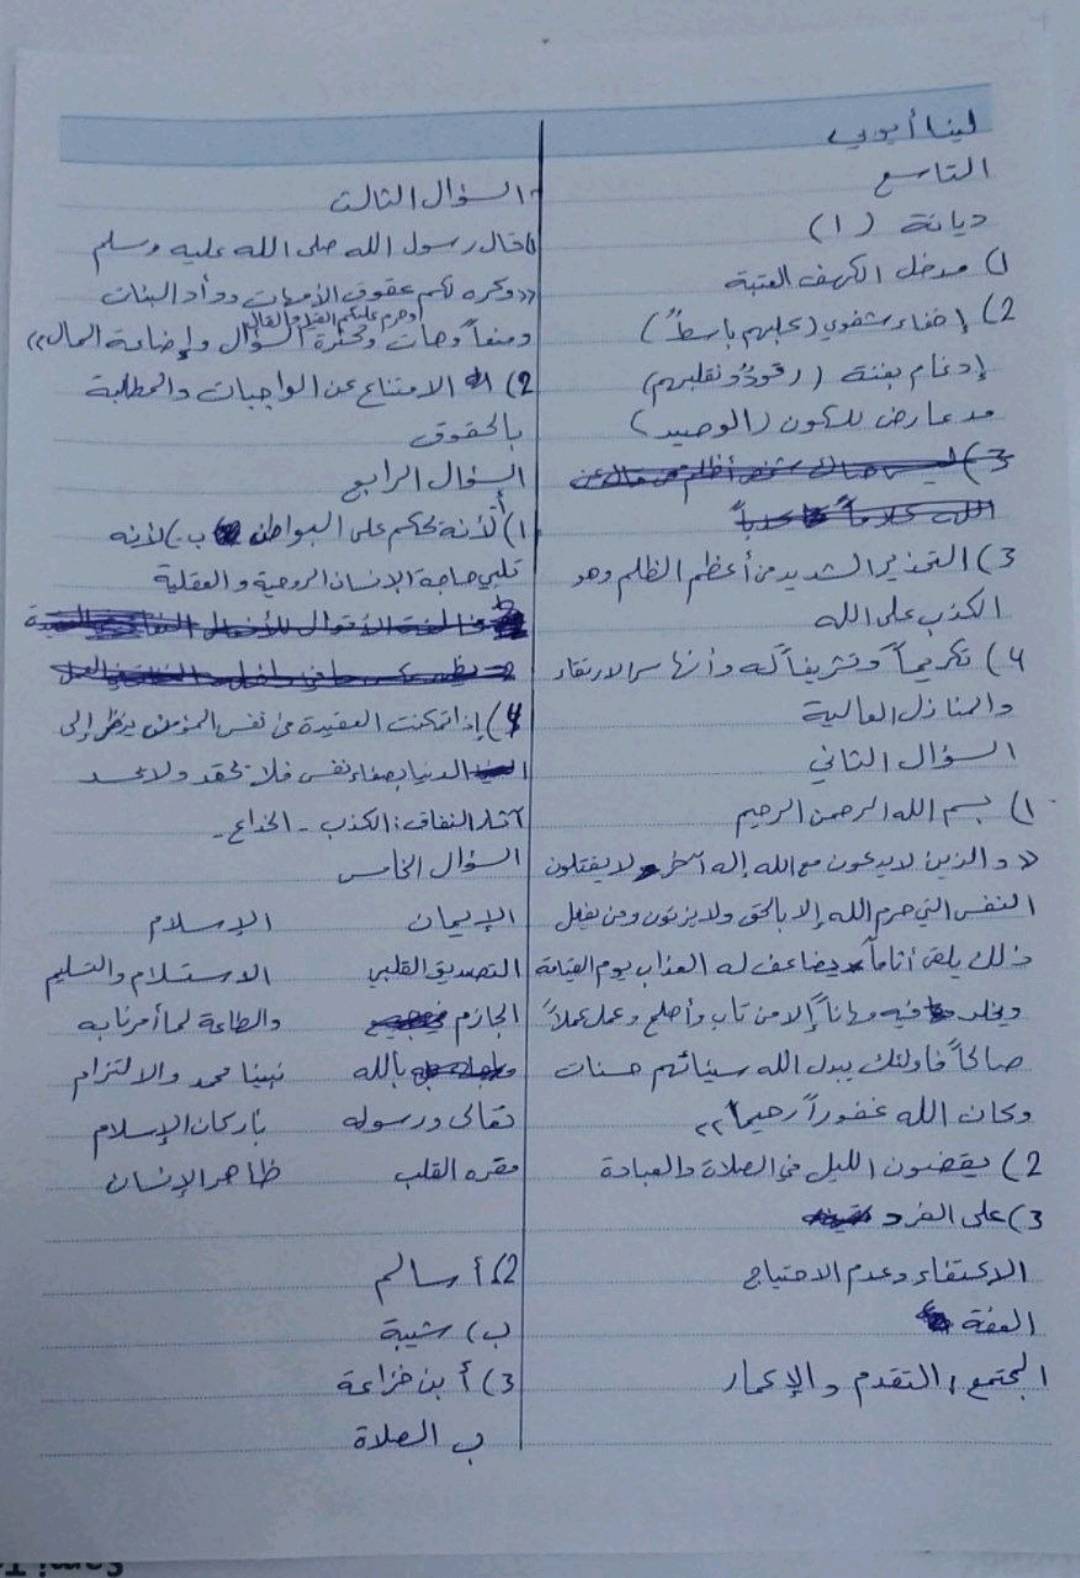 لينا أيوبي
التاسع
ديانة (١)
1) مدخل الكهف العتبة
2) إخفاء شفوي (كلبهم باسطٌ)
إدغام بغنة (رقودٌ ونقلبهم)
مد عارض للسكون (الوصيد)
3) التحذير الشديد من أعظم الظلم وهو
الكذب على الله
4) تكريماً وتشريفاً له وأنها سر الارتقاء
والمنازل العالية
السؤال الثاني
1) بسم الله الرحمن الرحيم
«والذين لا يدعون مع الله إله آخر ولا يقتلون
النفس التي حرم الله إلا بالحق ولا يزنون ومن يفعل
ذلك يلق أثاماً يضاعف له العذاب يوم القيامة
ويخلد فيه مهاناً إلا من تاب وأصلح وعمل عملاً
صالحاً فأولئك يبدل الله سيئاتهم حسنات
وكان الله غفوراً رحيماً»
2) يقضون الليل في الصلاة والعبادة
3) على الفرد
الاكتفاء وعدم الاحتياج
العفة
المجتمع: التقدم والإعمار
السؤال الثالث
1) قال رسول الله صلى الله عليه وسلم
«وكره لكم عقوق الأمهات ووأد البنات
وحرم عليكم القيل والقال
ومنعاً وهات وكثرة السؤال وإضاعة المال»
2) الامتناع عن الواجبات والمطالبة
بالحقوق
السؤال الرابع
1) أ- لأنه تحكم على البواطن ب-) لأنه
تلبي حاجة الإنسان الروحية والعقلية
4) إذا تمكنت العقيدة من نفس المؤمن ينظر إلى
الدنيا بصفاء نفس فلا يحقد ولا يحسد
آثار النفاق: الكذب - الخداع -
السؤال الخامس
الإيمان الإسلام
التصديق القلبي الاستسلام والتسليم
الجازم والطاعة لما أمرنا به
بالله نبينا محمد والالتزام
تعالى ورسوله بأركان الإسلام
مقره القلب ظاهر الإنسان
2) أ سالم
ب) شيبة
3) أ بن خزاعة
ب الصلاة